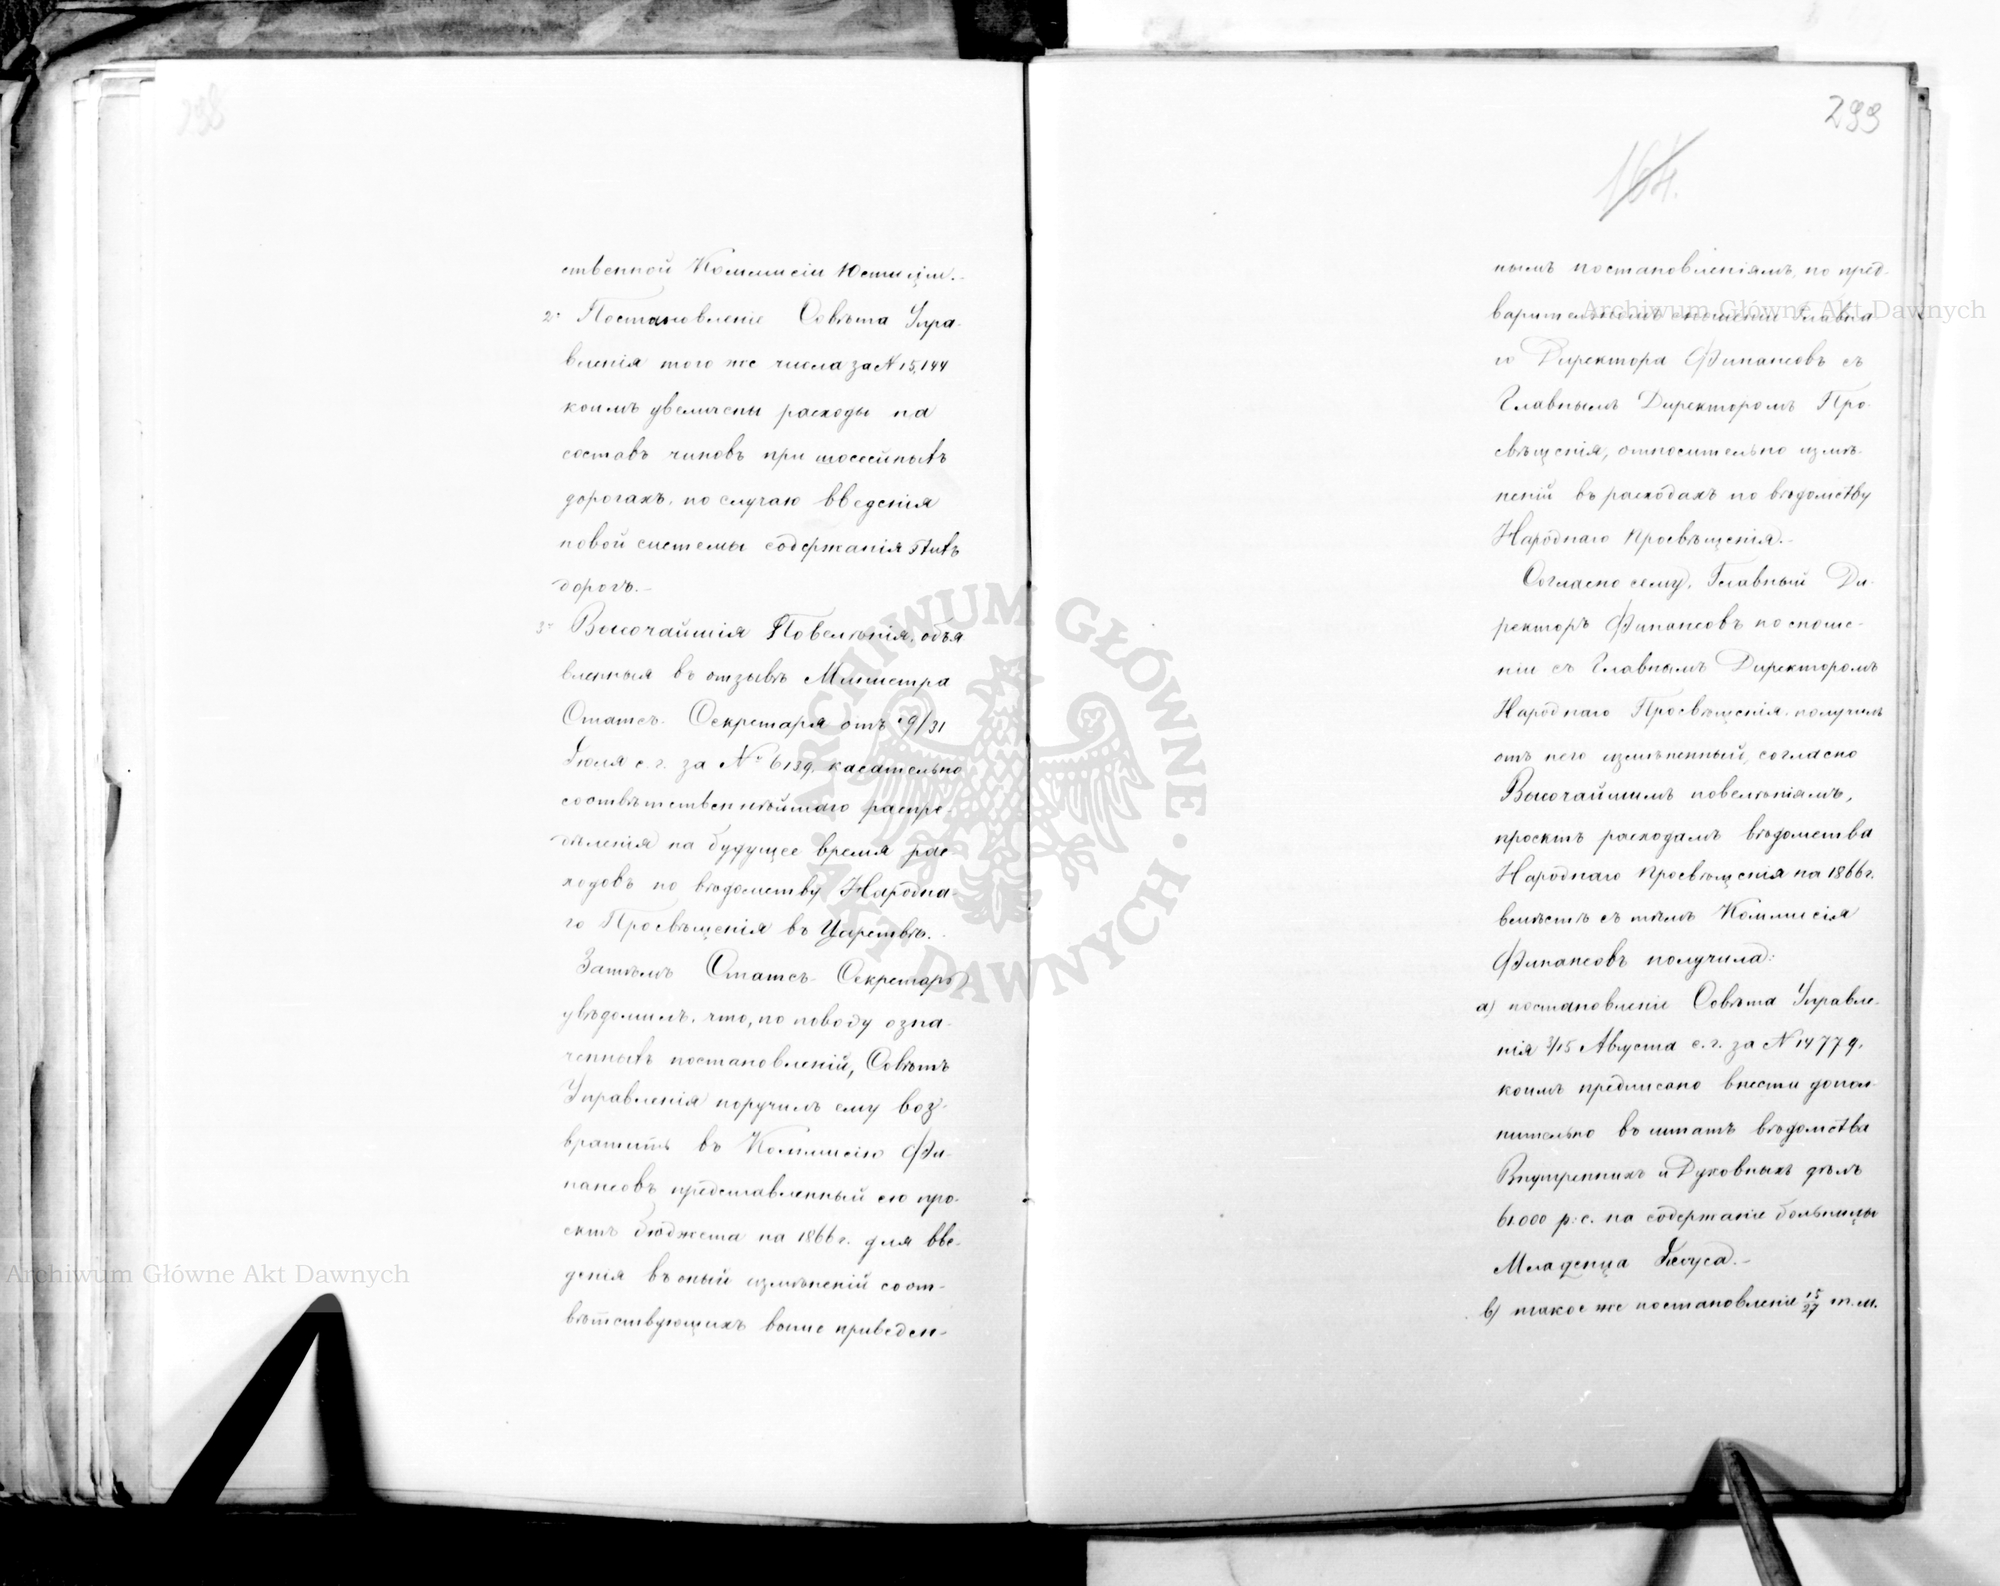 298
ственной Коммисіи Юстиціи.-
2° Постановленіе Совѣта Упра-
вленія того же числа за № 15,144
коимъ увеличены расходы на
составъ чиновъ при шоссейныхъ
дорогахъ, по случаю введенія
новой системы содержанія этихъ
дорогъ.-
3° Высочайшія Повелѣнія, объя
вленныя въ отзывѣ Министра
Статсъ-Секретаря отъ 19/31
Іюля с. г. за № 6139, касательно
соотвѣтственнѣйшаго распре-
дѣленія на будущее время рас-
ходовъ по вѣдомству Народна-
го Просвѣщенія въ Царствѣ.-
Затѣмъ Статсъ-Секретарь
увѣдомилъ, что, по поводу озна-
ченныхъ постановленій, Совѣтъ
Управленія поручилъ ему воз-
вратить въ Коммисію Фи-
нансовъ представленный ею про-
ектъ бюджета на 1866 г. для вве-
денія въ оный измѣненій соот-
вѣтствующихъ выше приведен-
299
164.
нымъ постановленіямъ, по пред-
варительномъ сношеніи Главна
го Директора Финансовъ съ
Главнымъ Директоромъ Про-
свѣщенія, относительно измѣ-
неній въ расходахъ по вѣдомству
Народнаго Просвѣщенія.-
Согласно сему, Главный Ди-
ректоръ Финансовъ по сноше-
ніи съ Главнымъ Директоромъ
Народнаго Просвѣщенія, получилъ
отъ него измѣненный, согласно
Высочайшимъ повелѣніямъ,
проектъ расходамъ вѣдомства
Народнаго Просвѣщенія на 1866 г.
вмѣстѣ съ тѣмъ Коммисія
Финансовъ получила:
а) постановленіе Совѣта Управле-
нія 3/15 Августа с. г. за № 14779,
коимъ предписано внести допол-
нительно въ штатъ вѣдомства
Внутреннихъ и Духовныхъ дѣлъ
61.000 р: с. на содержаніе больницы
Младенца Іисуса.-
b) такое же постановленіе 15/27 т. м.
Archiwum Główne Akt Dawnych
Archiwum Główne Akt Dawnych
ARCHIWUM GŁÓWNE · AKT DAWNYCH ·